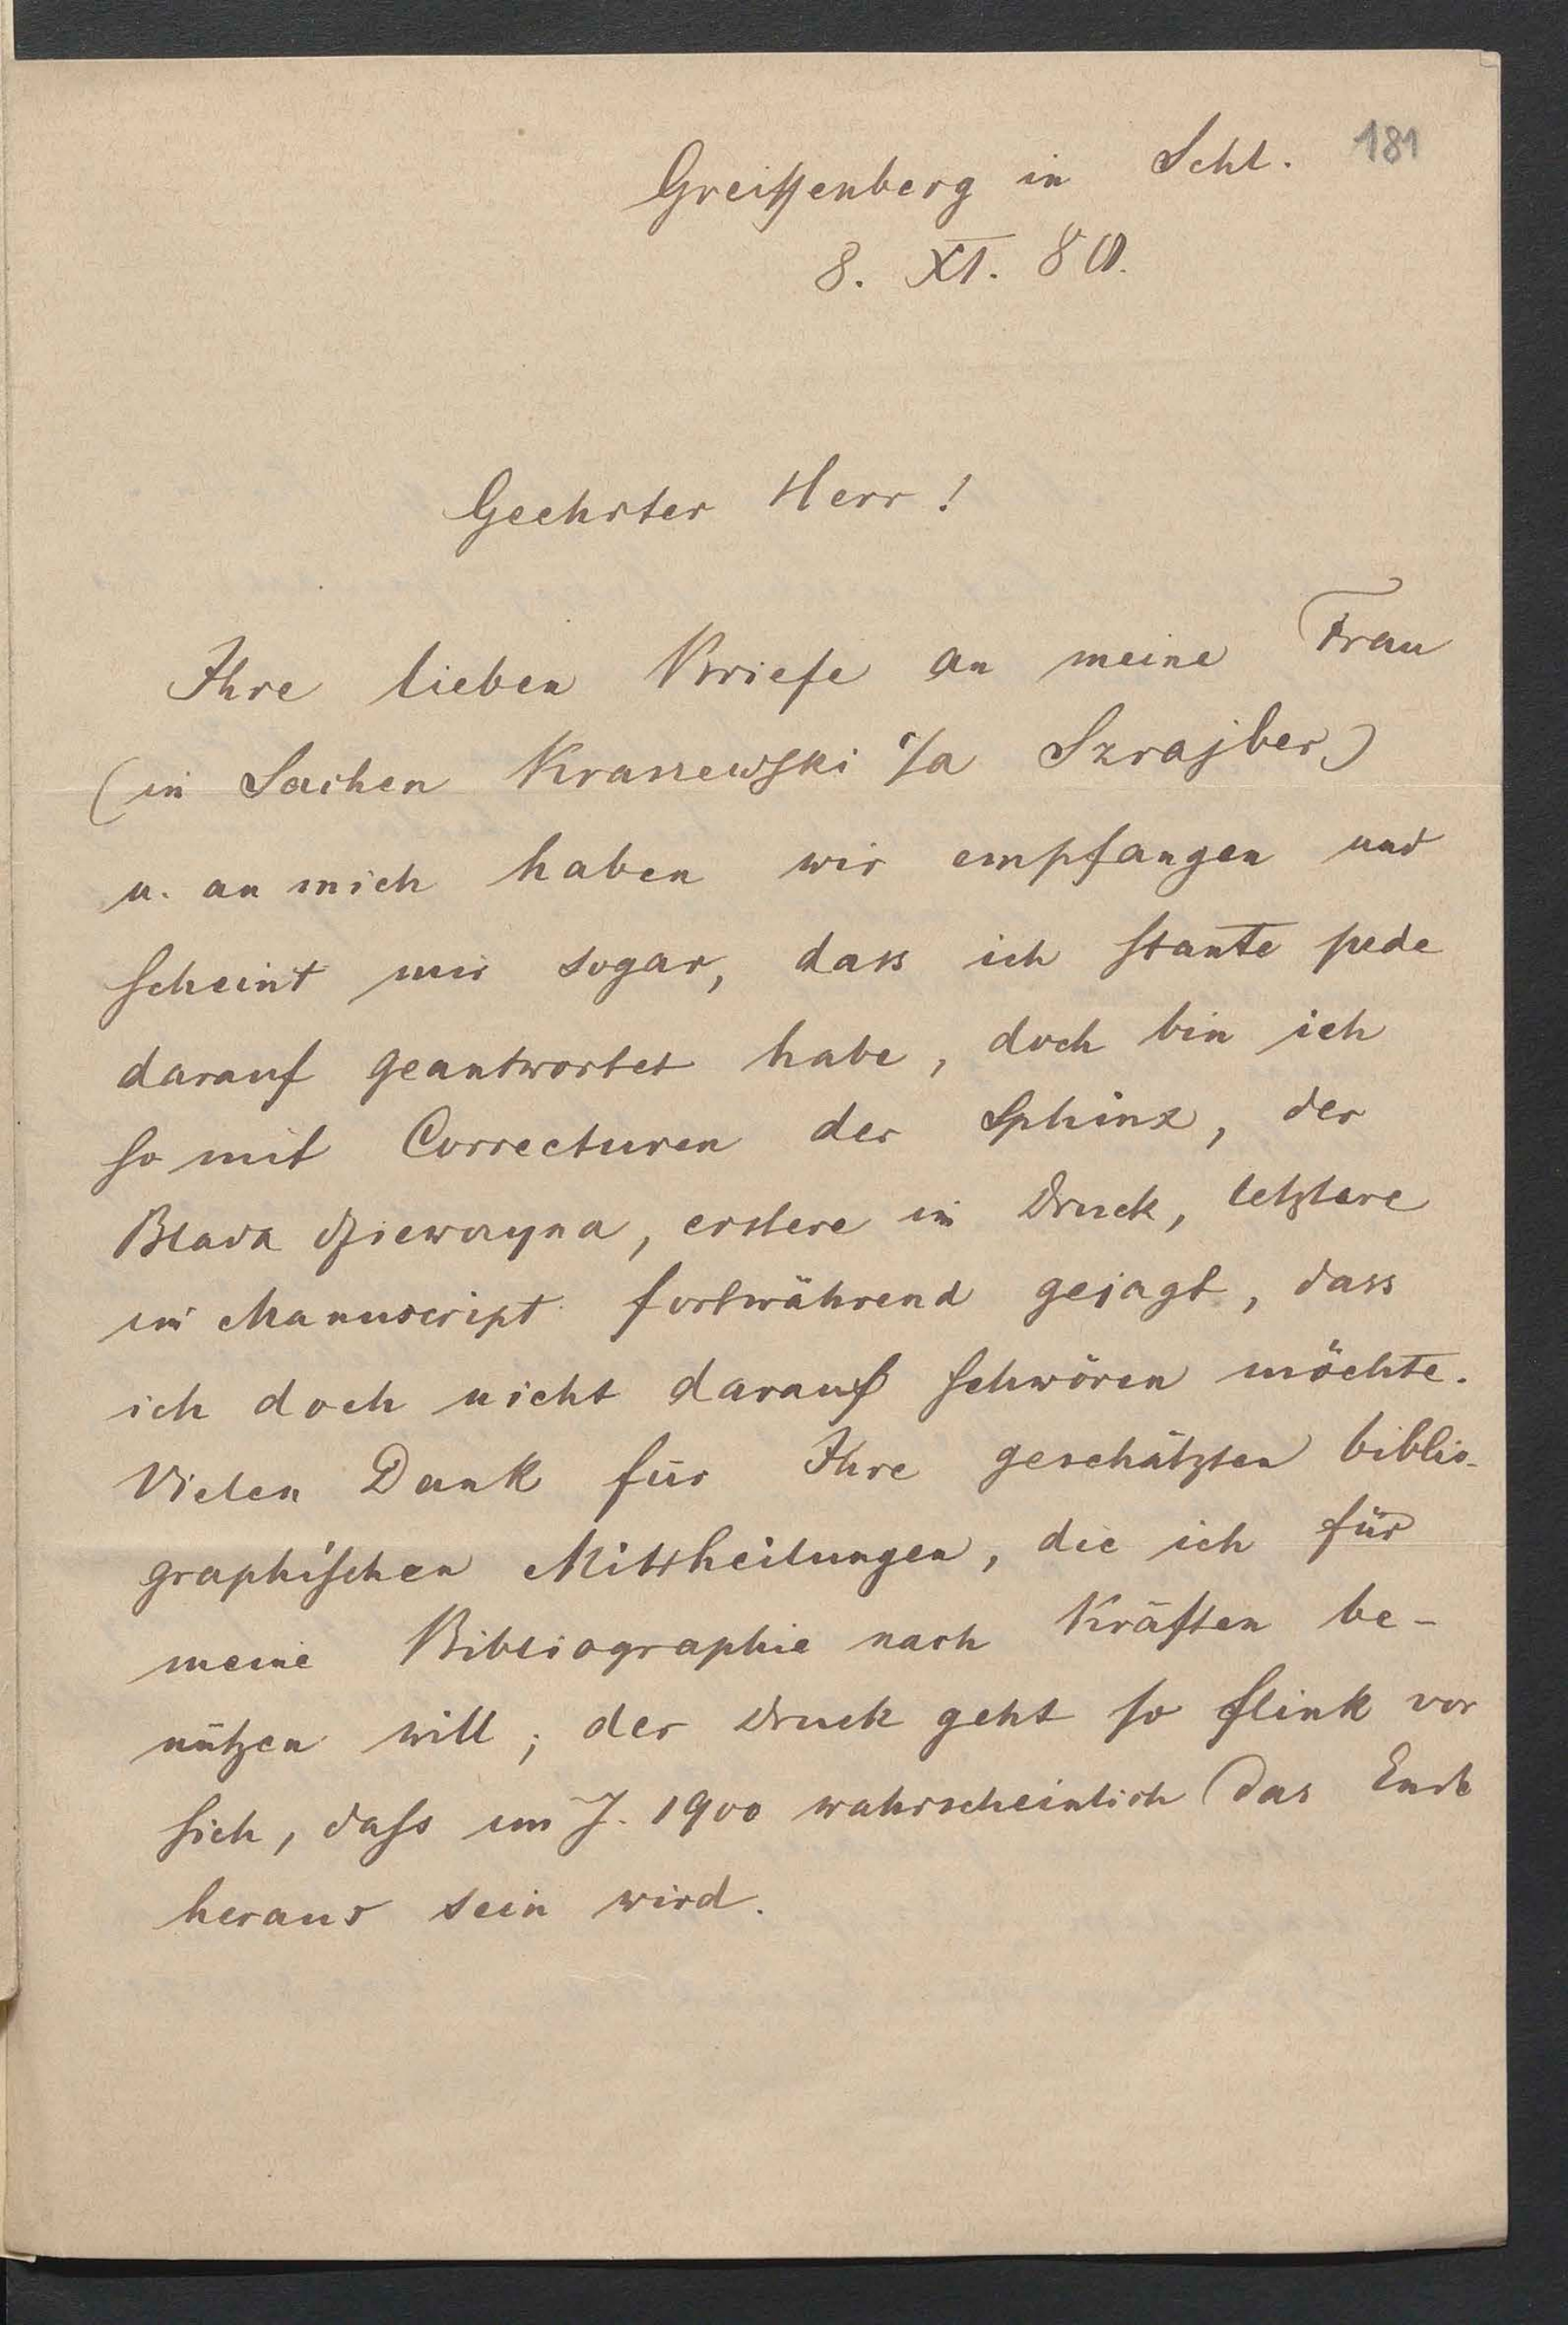 181
Greiffenberg in Schl.
8. XI. 80.
Geehrter Herr!
Ihre lieben Briefe an meine Frau
(in Sachen Kraszewski c/a Szrajber)
u. an mich haben wir empfangen und
scheint mir sogar, dass ich stante pede
darauf geantwortet habe, doch bin ich
so mit Correcturen der Sphinx, der
Blada dziewczyna, erstere im Druck, letztere
im Manuscript fortwährend gejagt, dass
ich doch nicht darauf schwören möchte.
Vielen Dank für Ihre geschätzten biblio-
graphischen Mittheilungen, die ich für
meine Bibliographie nach Kräften be-
nützen will; der Druck geht so flink vor
sich, dass im J. 1900 wahrscheinlich das Ende
heraus sein wird.